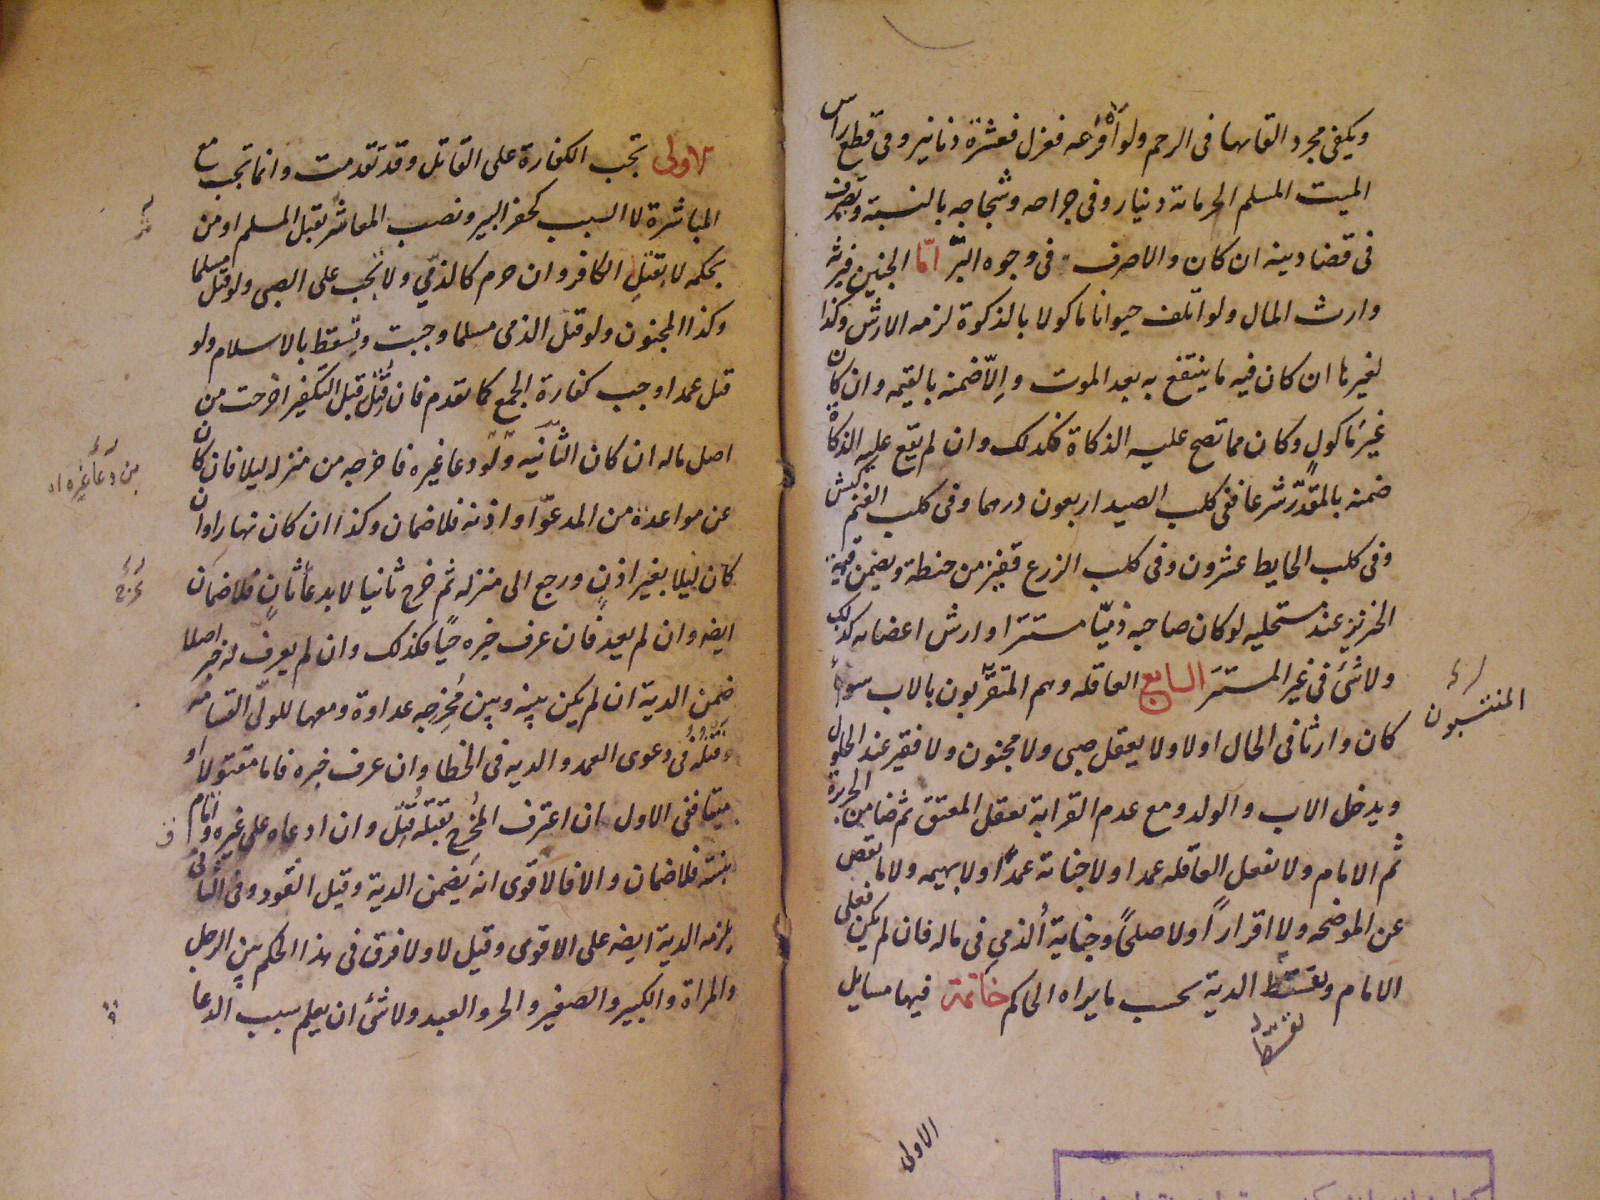 ويكفى مجرد القائها فى الرحم ولو افزعه فعزل فعشرة دنانير وفى قطع راس
الميت المسلم الحر مائة دينار وفى جراحه وشجاجه بالنسبة ويصرف
فى قضا دينه ان كان والا صرف فى وجوه البرّ امّا الجنين فيرثه
وارث المال ولو اتلف حيوانا ماكولا بالذكوة لزمه الارش وكذا
لغيرها ان كان فيه ما ينتفع به بعد الموت وإلاّ ضمنه بالقيمه وان كان
غير ماكولٍ وكان مما تصح عليه الذكاة فكذلك وان لم يقع عليه الذكاة
ضمنه بالمقدّر شرعا ففى كلب الصيد اربعون درهما وفى كلب الغنم كبش
وفى كلب الحايط عشرون وفى كلب الزرع قفيز من حنطة ويضمن قيمة
الخنزير عند مستحليه لو كان صاحبه ذميّا مستترا وارش اعضائه كذلك
ولا شئ فى غير المستتر السابع العاقله وهم المتقرّبون بالاب سواء
كان وارثا فى الحال اولا ولا يعقل صبى ولا مجنون ولا فقير عند الحلول
ويدخل الاب والولد ومع عدم القرابة يعقل المعتق ثم ضامن الجريرة
ثم الامام ولا تعقل العاقله عمدا ولا جناية عمدًا ولا بهيمه ولا ما نقص
عن الموضحه ولا اقرارًا ولا صلحًا وجناية الذمى فى ماله فان لم يكن فعلى
الامام وتقسّط الدية بحسب ما يراه الحاكم خاتمة فيها مسايل
المنتسبون
تقسّط
الاولى
الاولى تجب الكفارة على القاتل وقد تقدمت وانما تجب مع
المباشرة لا السبب كحفر البير ونصب المعاثر بقتل المسلم او من
بحكمه لا بقتل الكافر وان حرم كالذمّي ولا تجب على الصبى ولو قتل مسلما
وكذا المجنون ولو قتل الذمى مسلما وجبت وتسقط بالاسلام ولو
قتل عمدا وجب كفارة الجمع كما تقدم فان قُتل قبل التكفير اخرجت من
اصل ماله ان كان الثانيه ولو دعا غيره فاخرجه من منزله ليلا فان كان
عن مواعدة من المدعوّ او اذنه فلا ضمان وكذا ان كان نهارا وان
كان ليلا بغير اذنٍ ورجع الى منزله ثم خرج ثانيا لا بدعاً ثانٍ فلا ضمان
ايضه وان لم يعد فان عرف خبره حيًا فكذلك وان لم يعرف له خبر اصلا
ضمن الدية ان لم يكن بينه وبين مُخرِجه عداوة ومعها للولىّ القسامه
وقتله فى دعوى العمد والديه فى الخطا وان عرف خبره فاما مقتولا او
ميتا ففى الاول ان اعترف المُخرِج بقتله قُتِل وان ادعاه على غيره واقام
بينته فلا ضمان والا فالاقوى انه يضمن الدية وقيل القود وفى الثانى
يلزمه الدية ايضه على الاقوى وقيل لا ولا فرق فى هذا الحكم بين الرجل
والمراة والكبير والصغير والحر والعبد ولا شئ ان يعلم سبب الدعا
من دعا غيره